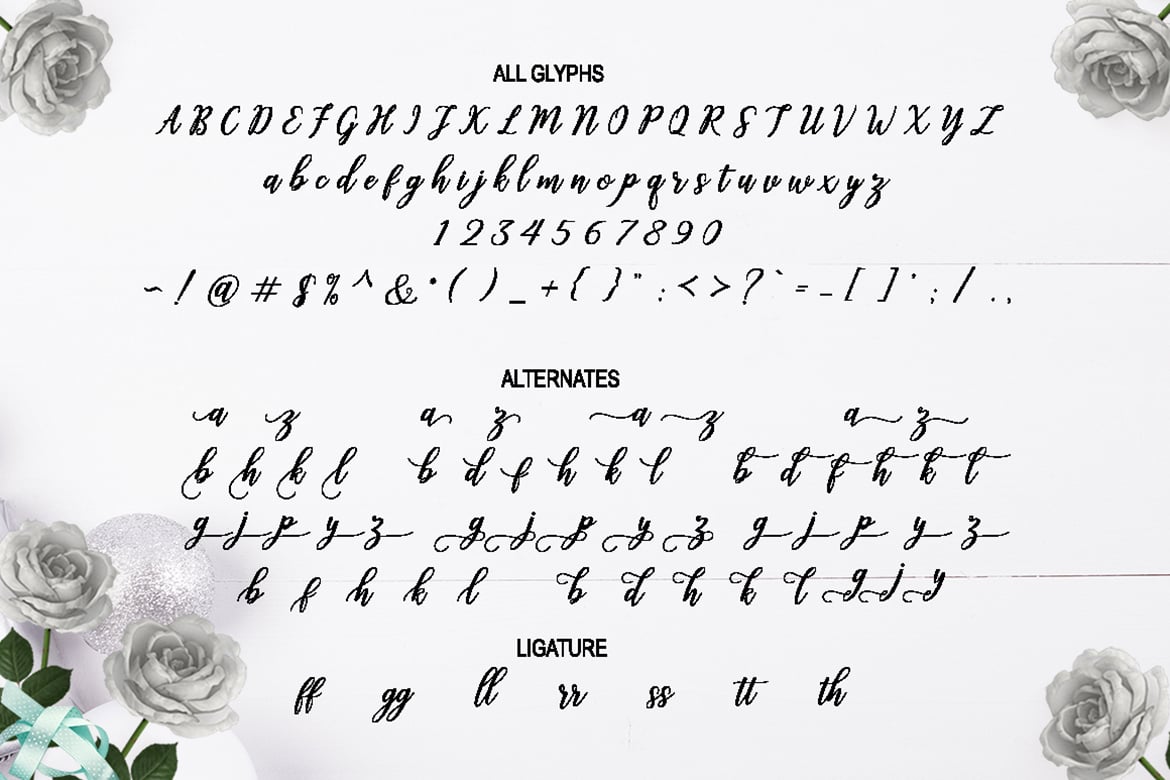 ALL GLYPHS
A B C D E F G H I J K L M N O P Q R S T U V W X Y Z
a b c d e f g h i j k l m n o p q r s t u v w x y z
1 2 3 4 5 6 7 8 9 0
~ ! @ # $ % ^ & * ( ) _ + { } " : < > ? ` = - [ ] ' ; / . ,
ALTERNATES
a z a z a z a z
b h k l b d f h k l b d f h k l
g j p y z g j p y z g j p y z
b f h k l b d h k l g j y
LIGATURE
ff gg ll rr ss tt th